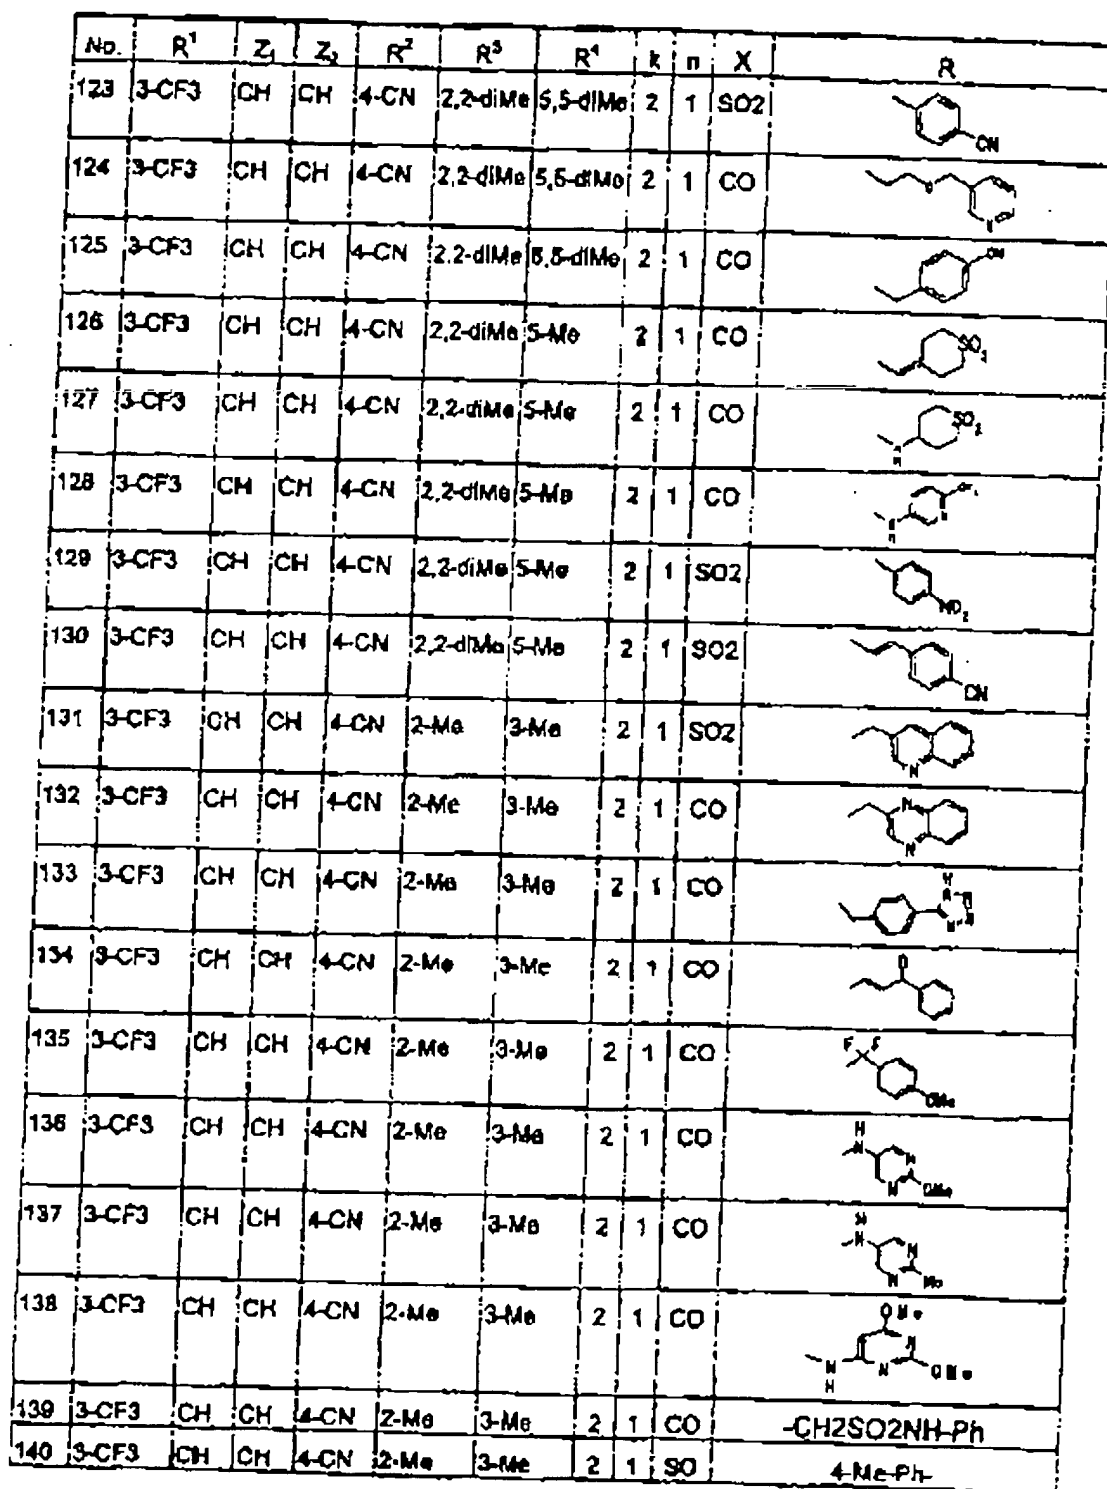 No. R¹ Z₁ Z₂ R² R³ R⁴ k n X R
123 3-CF3 CH CH 4-CN 2,2-diMe 5,5-diMe 2 1 SO2 CN
124 3-CF3 CH CH 4-CN 2,2-diMe 5,5-diMe 2 1 CO
125 3-CF3 CH CH 4-CN 2,2-diMe 5,5-diMe 2 1 CO
126 3-CF3 CH CH 4-CN 2,2-diMe 5-Me 2 1 CO SO₂
127 3-CF3 CH CH 4-CN 2,2-diMe 5-Me 2 1 CO SO₂ N H
128 3-CF3 CH CH 4-CN 2,2-diMe 5-Me 2 1 CO
129 3-CF3 CH CH 4-CN 2,2-diMe 5-Me 2 1 SO2 NO₂
130 3-CF3 CH CH 4-CN 2,2-diMe 5-Me 2 1 SO2 CN
131 3-CF3 CH CH 4-CN 2-Me 3-Me 2 1 SO2 N
132 3-CF3 CH CH 4-CN 2-Me 3-Me 2 1 CO N N
133 3-CF3 CH CH 4-CN 2-Me 3-Me 2 1 CO H N N N N
134 3-CF3 CH CH 4-CN 2-Me 3-Me 2 1 CO O
135 3-CF3 CH CH 4-CN 2-Me 3-Me 2 1 CO F F OMe
136 3-CF3 CH CH 4-CN 2-Me 3-Me 2 1 CO H N N N OMe
137 3-CF3 CH CH 4-CN 2-Me 3-Me 2 1 CO H N N N Me
138 3-CF3 CH CH 4-CN 2-Me 3-Me 2 1 CO OMe N N OMe N H
139 3-CF3 CH CH 4-CN 2-Me 3-Me 2 1 CO -CH2SO2NH-Ph
140 3-CF3 CH CH 4-CN 2-Me 3-Me 2 1 SO 4-Me-Ph-